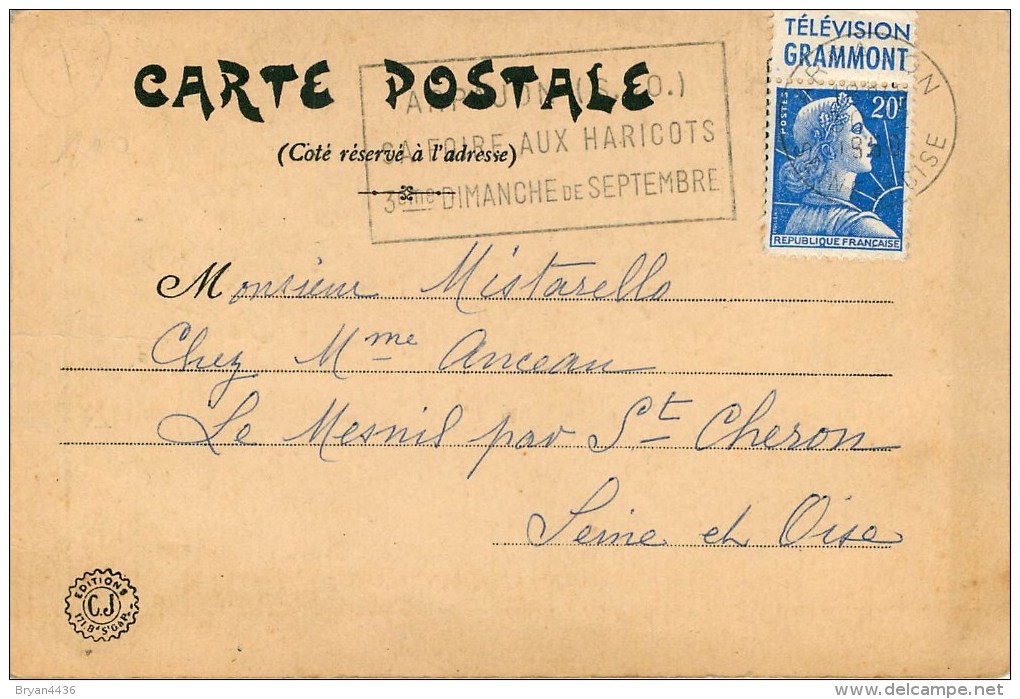 CARTE POSTALE
(Coté réservé à l'adresse)
ARPAJON (S.&O.)
SA FOIRE AUX HARICOTS
3eme DIMANCHE DE SEPTEMBRE
TÉLÉVISION
GRAMMONT
POSTES
20F
RÉPUBLIQUE FRANÇAISE
ARPAJON
OISE
Monsieur Mistarello
Chez Mme Anceau
Le Mesnil par St Cheron
Seine et Oise
EDITIONS
C.J
171. Bd St G.
Bryan4436
delcampe.net